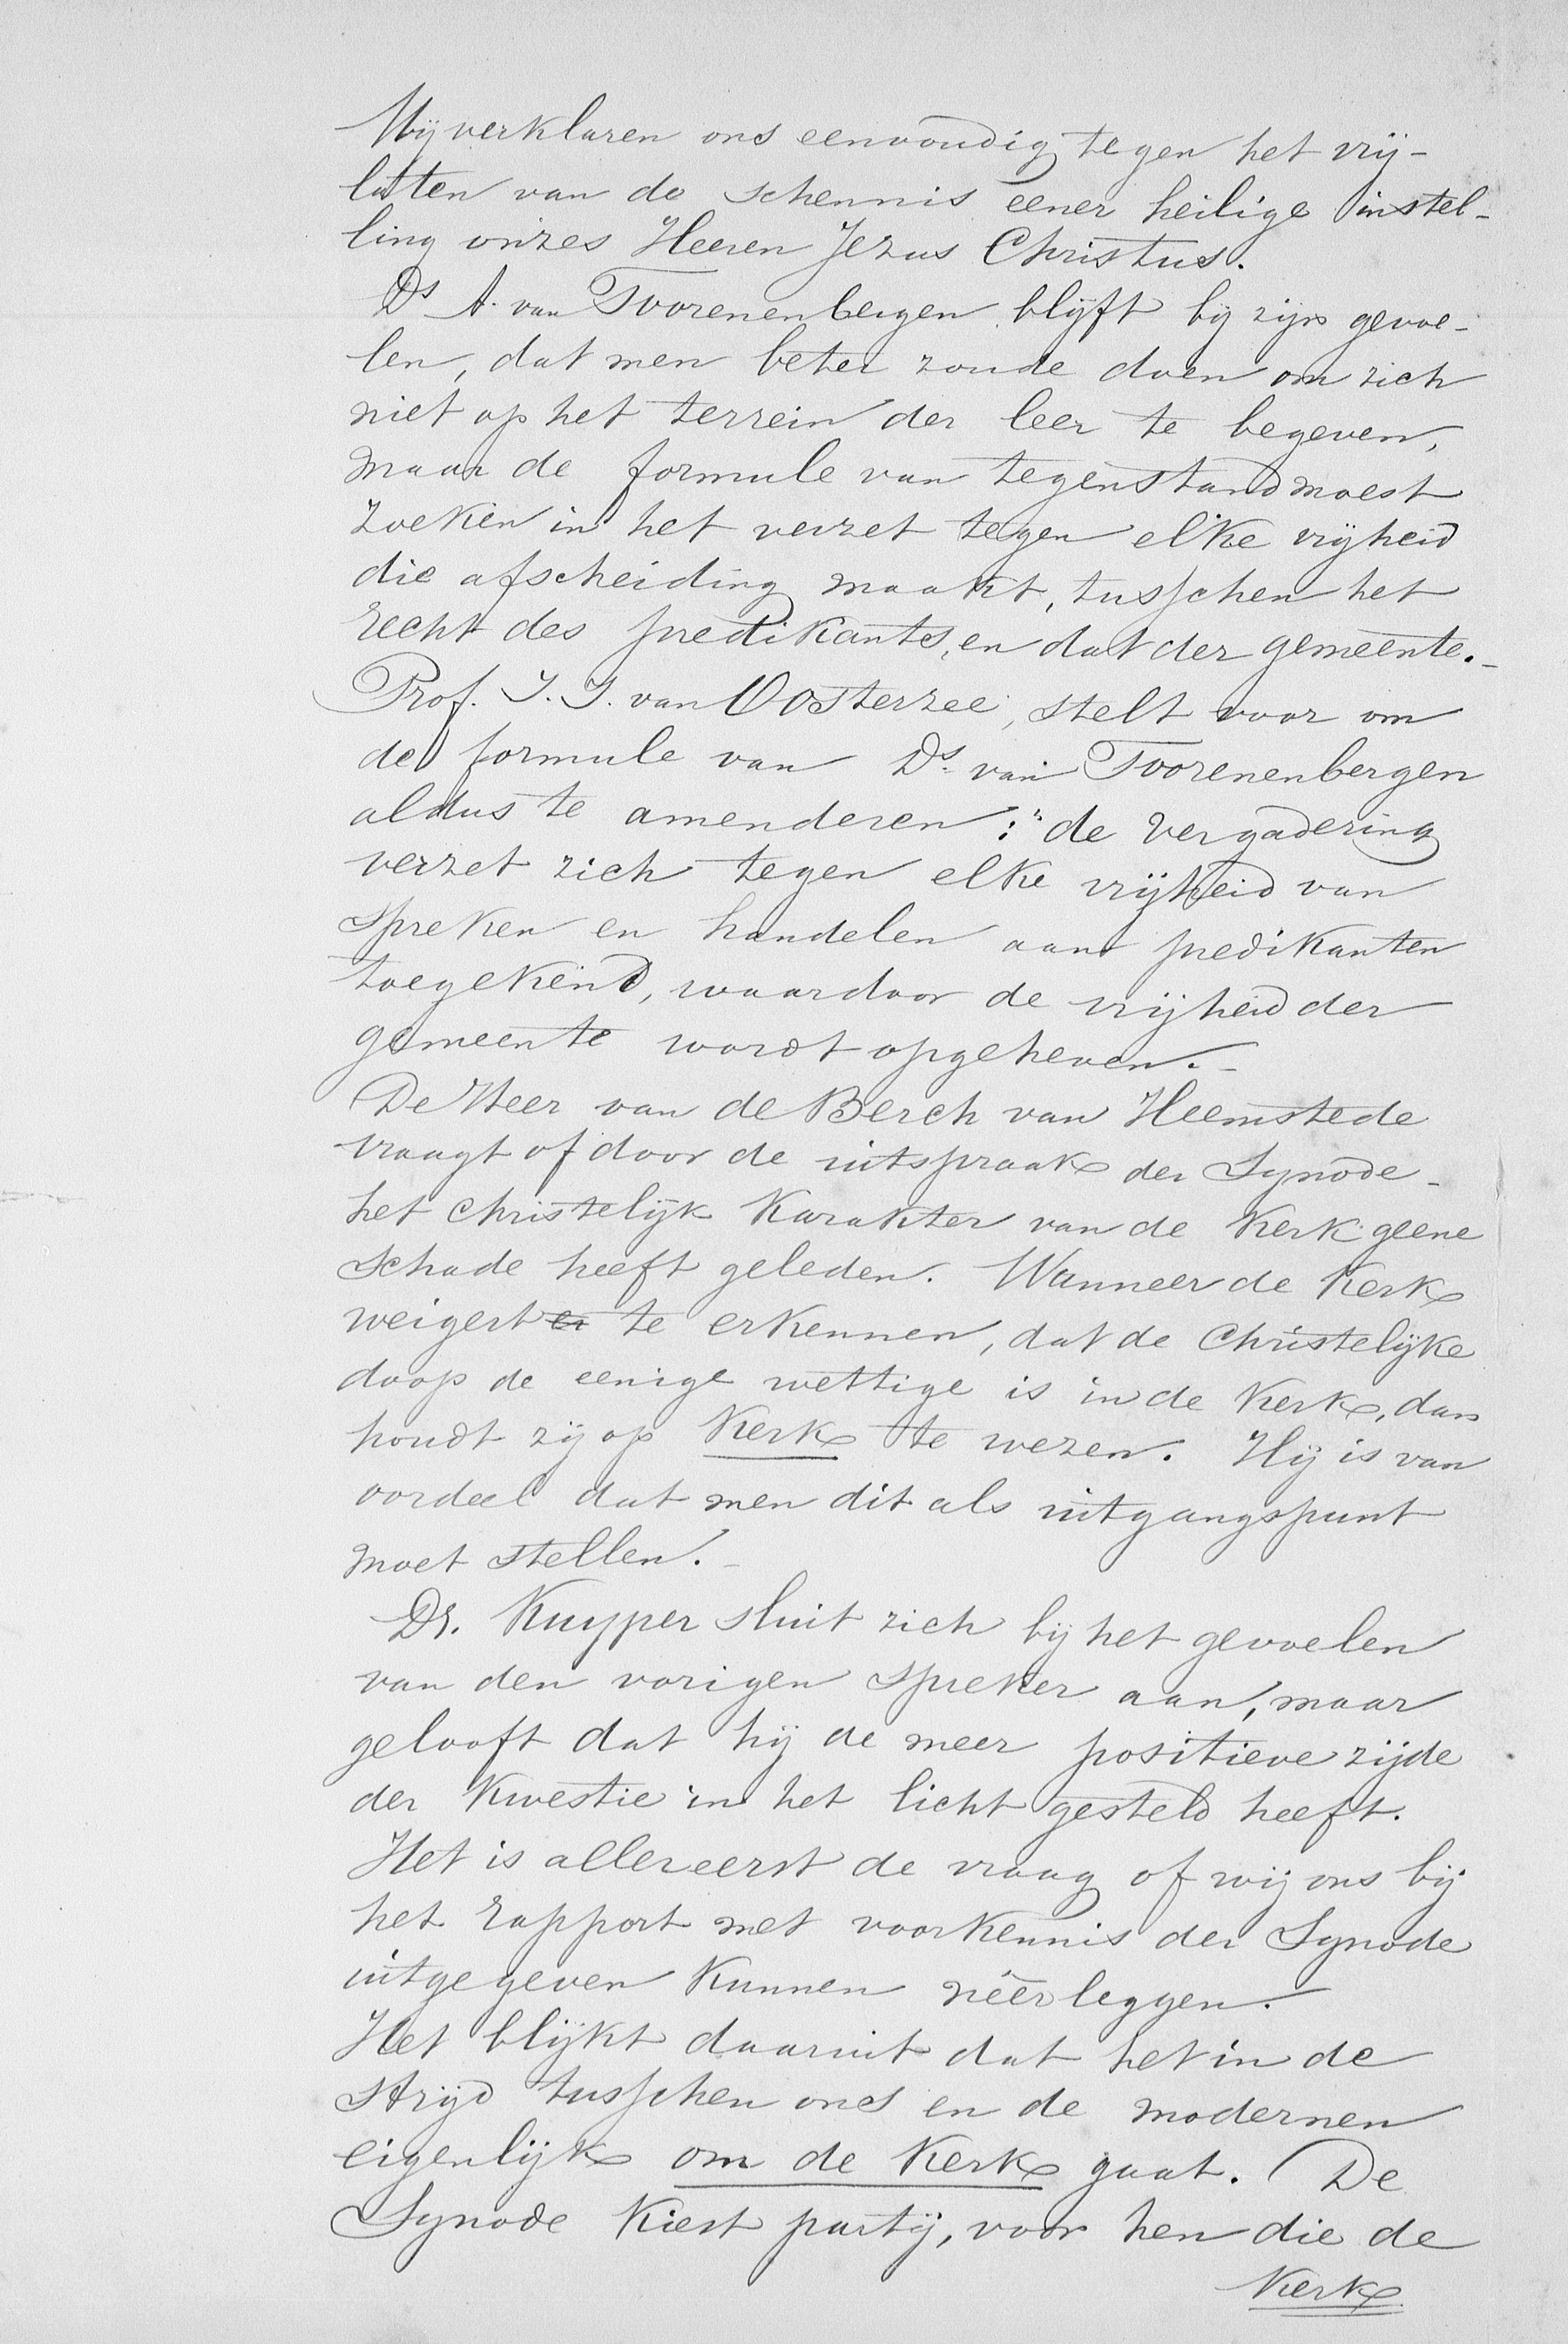 Wij verklaren ons eenvoudig tegen het vrij-
laten van de schennis eener heilige instel-
ling onzes Heeren Jezus Christus.
Ds A. van Toorenenbergen blijft bij zijn gevoe-
len, dat men beter zoude doen om zich
niet op het terrein der leer te begeven,
maar de formule van tegenstand moest
zoeken in het verzet tegen elke vrijheid
die afscheiding maakt, tusschen het
recht des predikants, en dat der gemeente.-
Prof. J. J. van Oosterzee, stelt voor om
de formule van Ds. van Toorenenbergen
aldus te amenderen: "de vergadering
verzet zich tegen elke vrijheid van
spreken en handelen aan predikanten
toegekend, waardoor de vrijheid der
gemeente wordt opgeheven.-
De Heer van de Berch van Heemstede
vraagt of door de uitspraak der Synode-
het christelijk karakter van de Kerk geene
schade heeft geleden. Wanneer de Kerk
weigert er te erkennen, dat de Christelijke
doop de eenige wettige is in de Kerk, dan
houdt zij op Kerk te wezen. Hij is van
oordeel dat men dit als uitgangspunt
moet stellen.-
Dr. Kuyper sluit zich bij het gevoelen
van den vorigen spreker aan, maar
gelooft dat hij de meer positieve zijde
der kwestie in het licht gesteld heeft.
Het is allereerst de vraag of wij ons bij
het rapport met voorkennis der Synode
uitgegeven kunnen néerleggen.
Het blijkt daaruit dat het in de
strijd tusschen ons en de modernen
eigenlijk om de Kerk gaat. De
Synode kiest partij, voor hen die de
Kerk